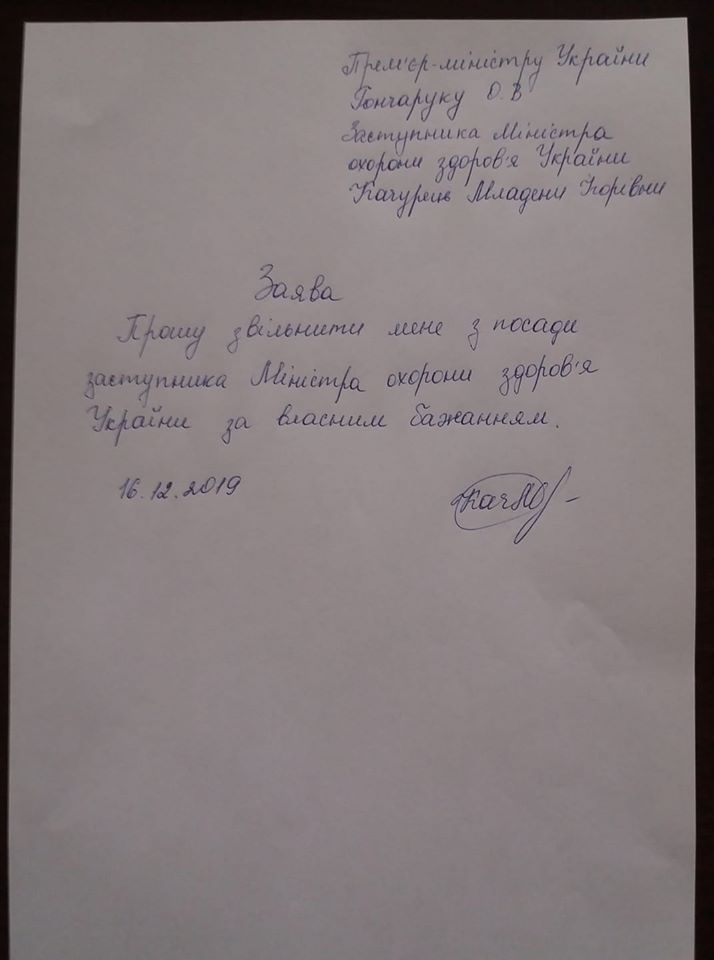 Прем'єр-міністру України
Гончаруку О.В
Заступника Міністра
охорони здоров'я України
Качурець Младени Ігорівни
Заява
Прошу звільнити мене з посади
заступника Міністра охорони здоров'я
України за власним бажанням.
16.12.2019